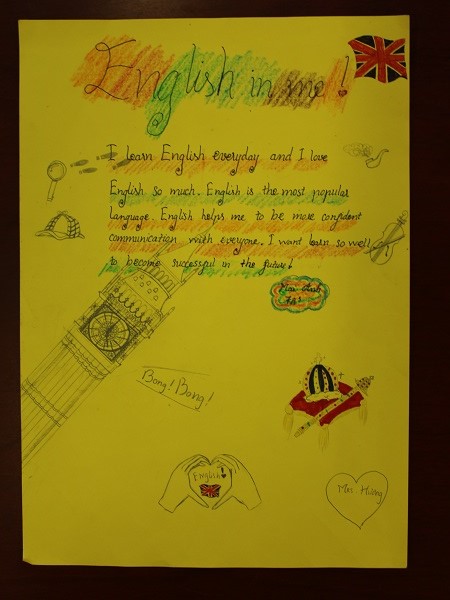 English in me!
I learn English everyday and I love
English so much. English is the most popular
language. English helps me to be more confident
communication with everyone. I want learn so well
to become successful in the future!
Anh
Bong! Bong!
English!
Mrs Hương